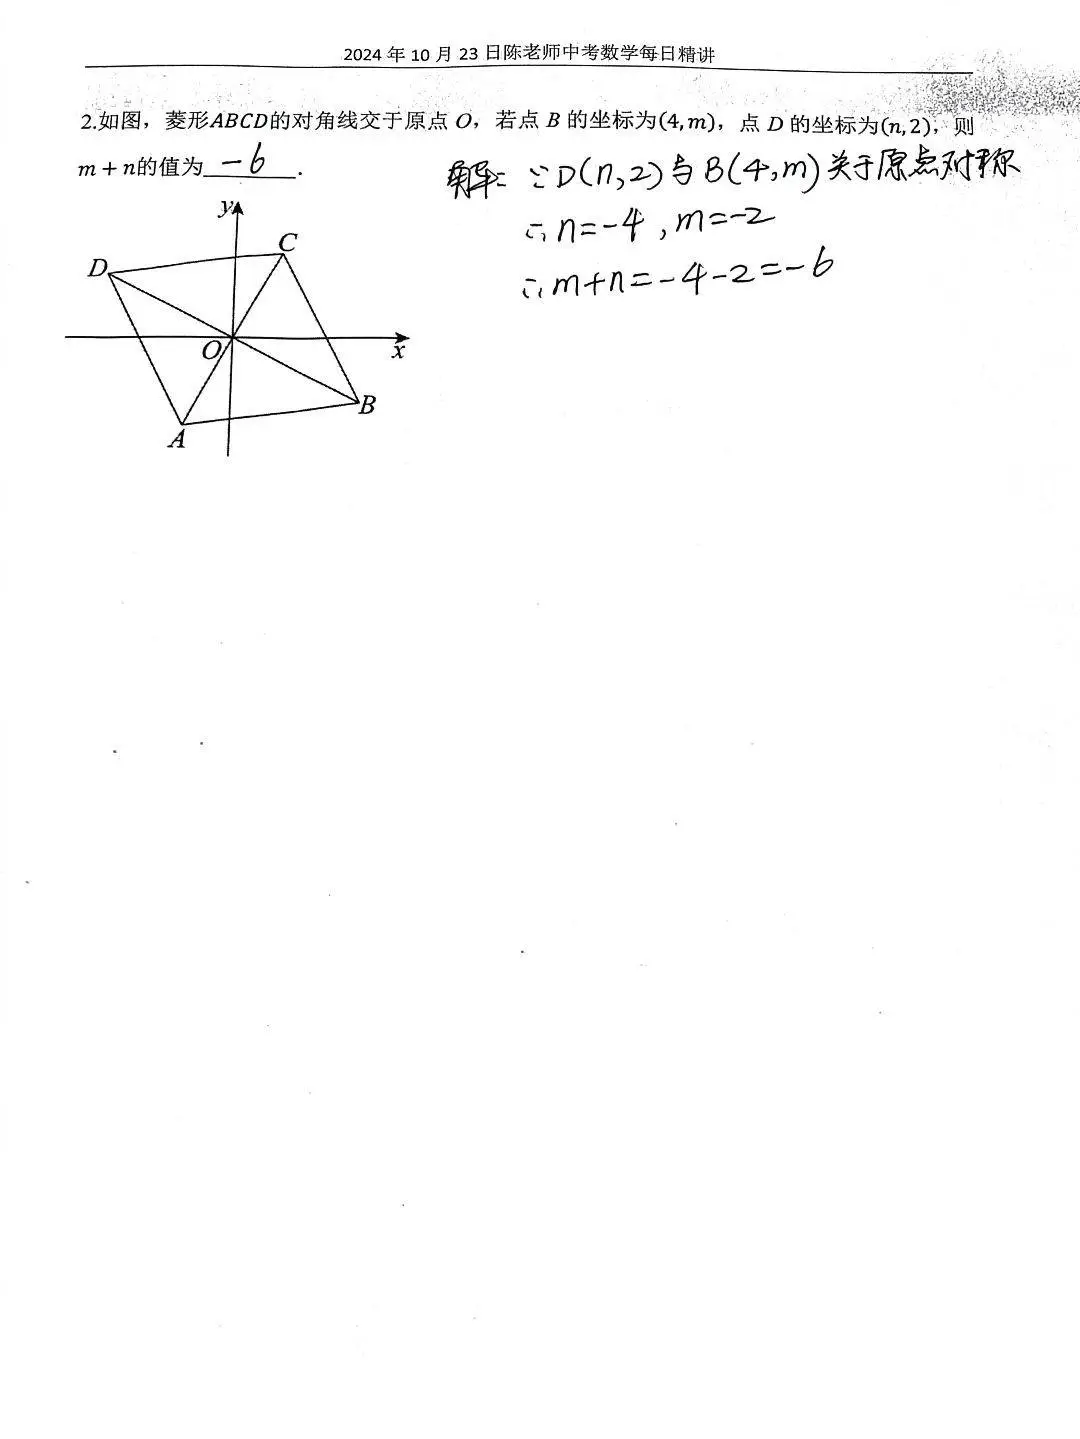 2024 年 10 月 23 日陈老师中考数学每日精讲
2.如图，菱形ABCD的对角线交于原点 O，若点 B 的坐标为(4,m)，点 D 的坐标为(n,2)，则
m + n的值为 -6 .
解: ∵D(n,2)与B(4,m)关于原点对称
∴n=-4,m=-2
∴m+n=-4-2=-6
y
C
D
O
x
B
A